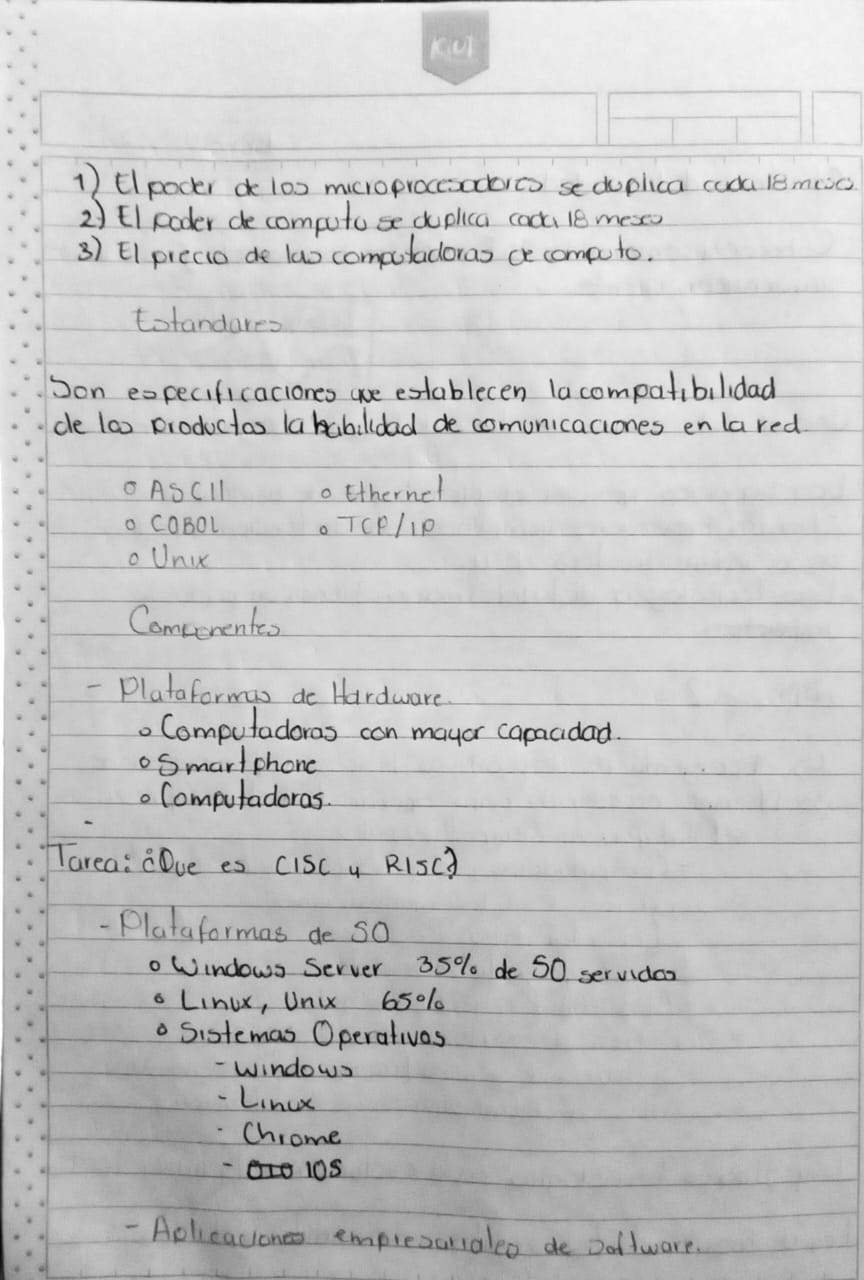 KUT
1) El poder de los microprocesadores se duplica cada 18 meses
2) El poder de computo se duplica cada 18 meses
3) El precio de las computadoras de computo.
Estandares
Son especificaciones que establecen la compatibilidad
de los productos la habilidad de comunicaciones en la red.
o ASCII o Ethernet
o COBOL o TCP/IP
o Unix
Componentes
- Plataformas de Hardware.
o Computadoras con mayor capacidad.
o Smartphone
o Computadoras.
-
Tarea: ¿Que es CISC y RISC?
- Plataformas de SO
o Windows Server 35% de SO servidos
o Linux, Unix 65%
o Sistemas Operativos
- Windows
- Linux
- Chrome
- IOS
- Aplicaciones empresariales de Software.